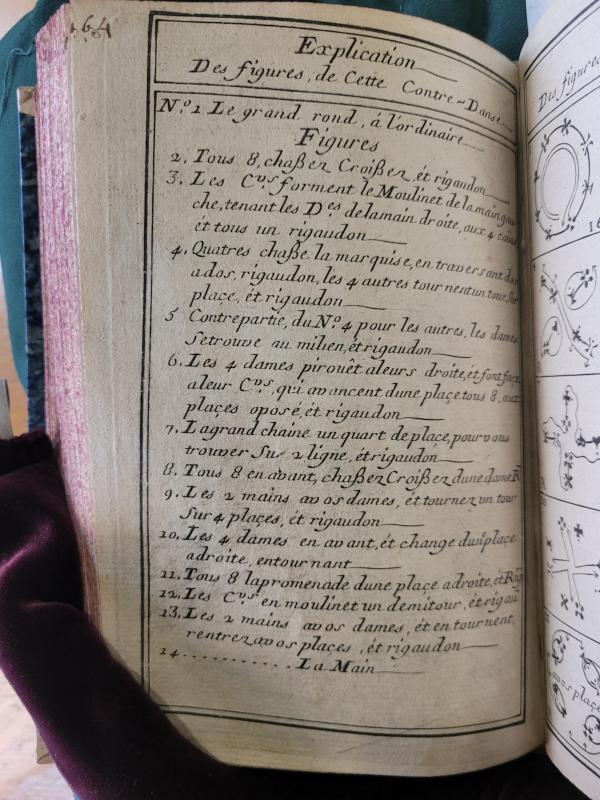 164
Explication
Des figures, de Cette Contre-Danse
N.º 1 Le grand rond, á l'ordinaire
Figures
2. Tous 8, chaßez Croißez, ét rigaudon
3. Les C.vs forment le Moulinet de la main gau
che, tenant les D.es de la main droite, aux 4 coins
ét tous un rigaudon
4. Quatres chaße la marquise, en traversant dos
a dos, rigaudon, les 4 autres tournent un tour Sur
plaçe, ét rigaudon
5 Contrepartie, du N.º 4 pour les autres, les dames
Se trouve au milieu, ét rigaudon
6. Les 4 dames pirouêt a leurs droite, ét font façe
a leur C.vs, qui avancent dune plaçe tous 8, aux
plaçes oposé, ét rigaudon
7. La grand chaine un quart de plaçe, pour vous
trouver Sur 2 ligne, ét rigaudon
8. Tous 8 en avant, chaßez Croißez dune dame R
9. Les 2 mains a vos dames, ét tournez un tour
Sur 4 plaçes, ét rigaudon
10. Les 4 dames en avant, ét change dun plaçe
a droite, en tournant
11. Tous 8 la promenade dune plaçe a droite, ét Rig
12. Les C.vs en moulinet un demi tour, ét rigau
13. Les 2 mains a vos dames, ét en tournent,
rentrez a vos plaçes, ét rigaudon
14........... La Main
Des figures
16
a vos plaçe